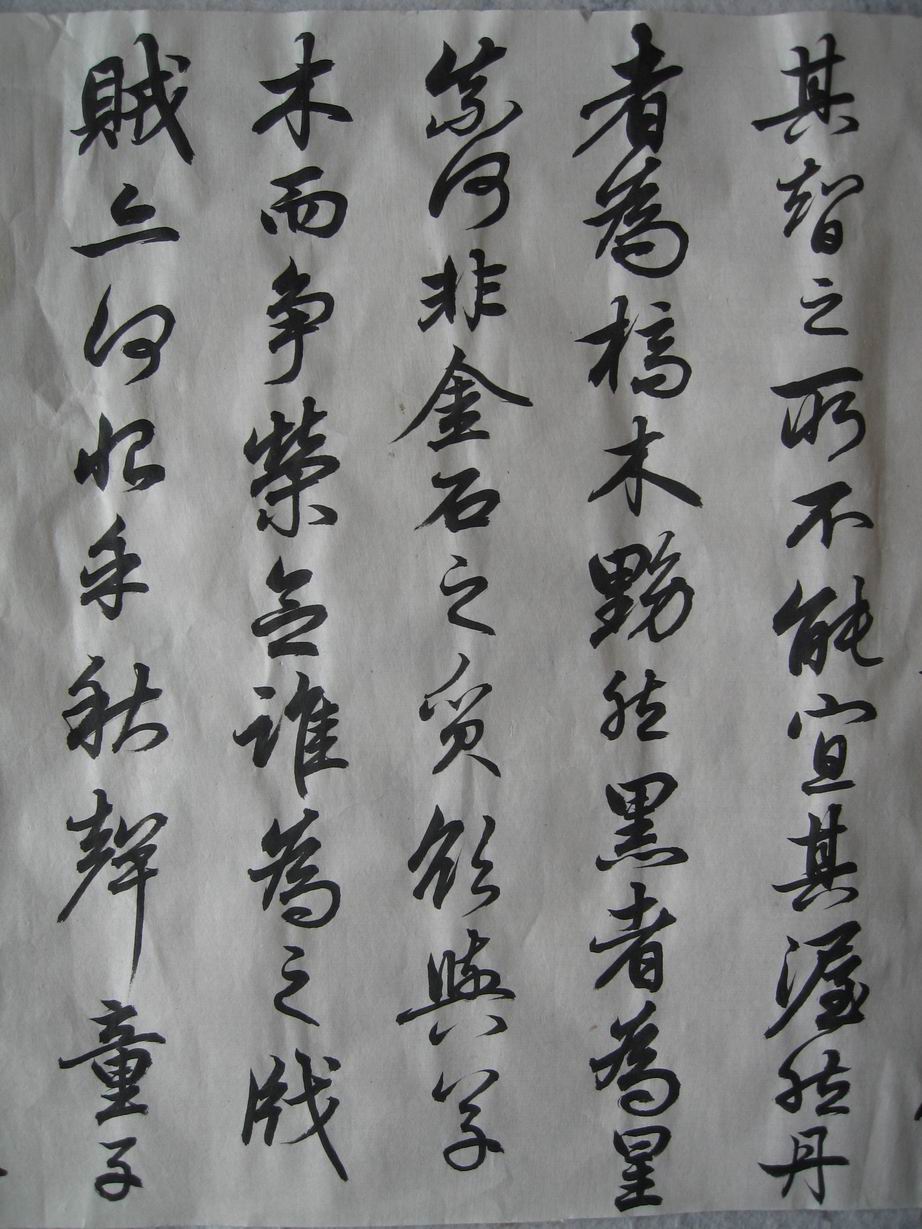 其智之所不能宜其渥然丹
者為槁木黟然黑者為星
奈何非金石之質欲與草
木而争榮念誰為之戕
賊亦何恨乎秋聲童子